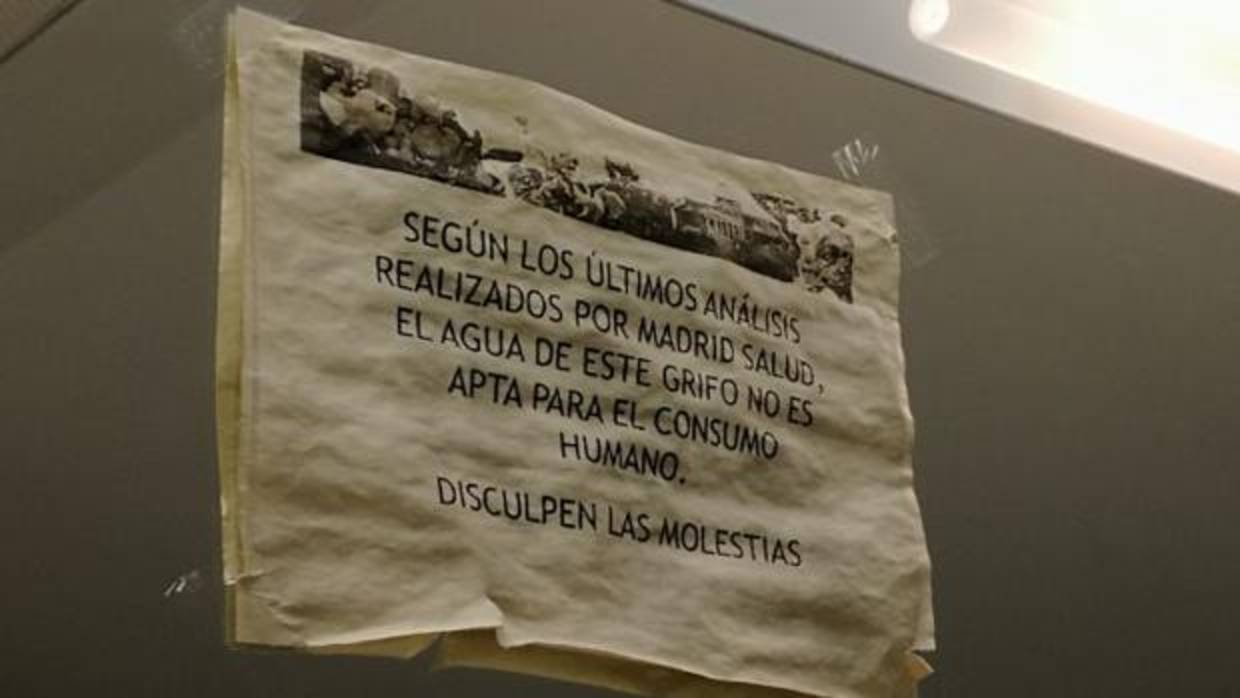 SEGÚN LOS ÚLTIMOS ANÁLISIS
REALIZADOS POR MADRID SALUD,
EL AGUA DE ESTE GRIFO NO ES
APTA PARA EL CONSUMO
HUMANO.
DISCULPEN LAS MOLESTIAS